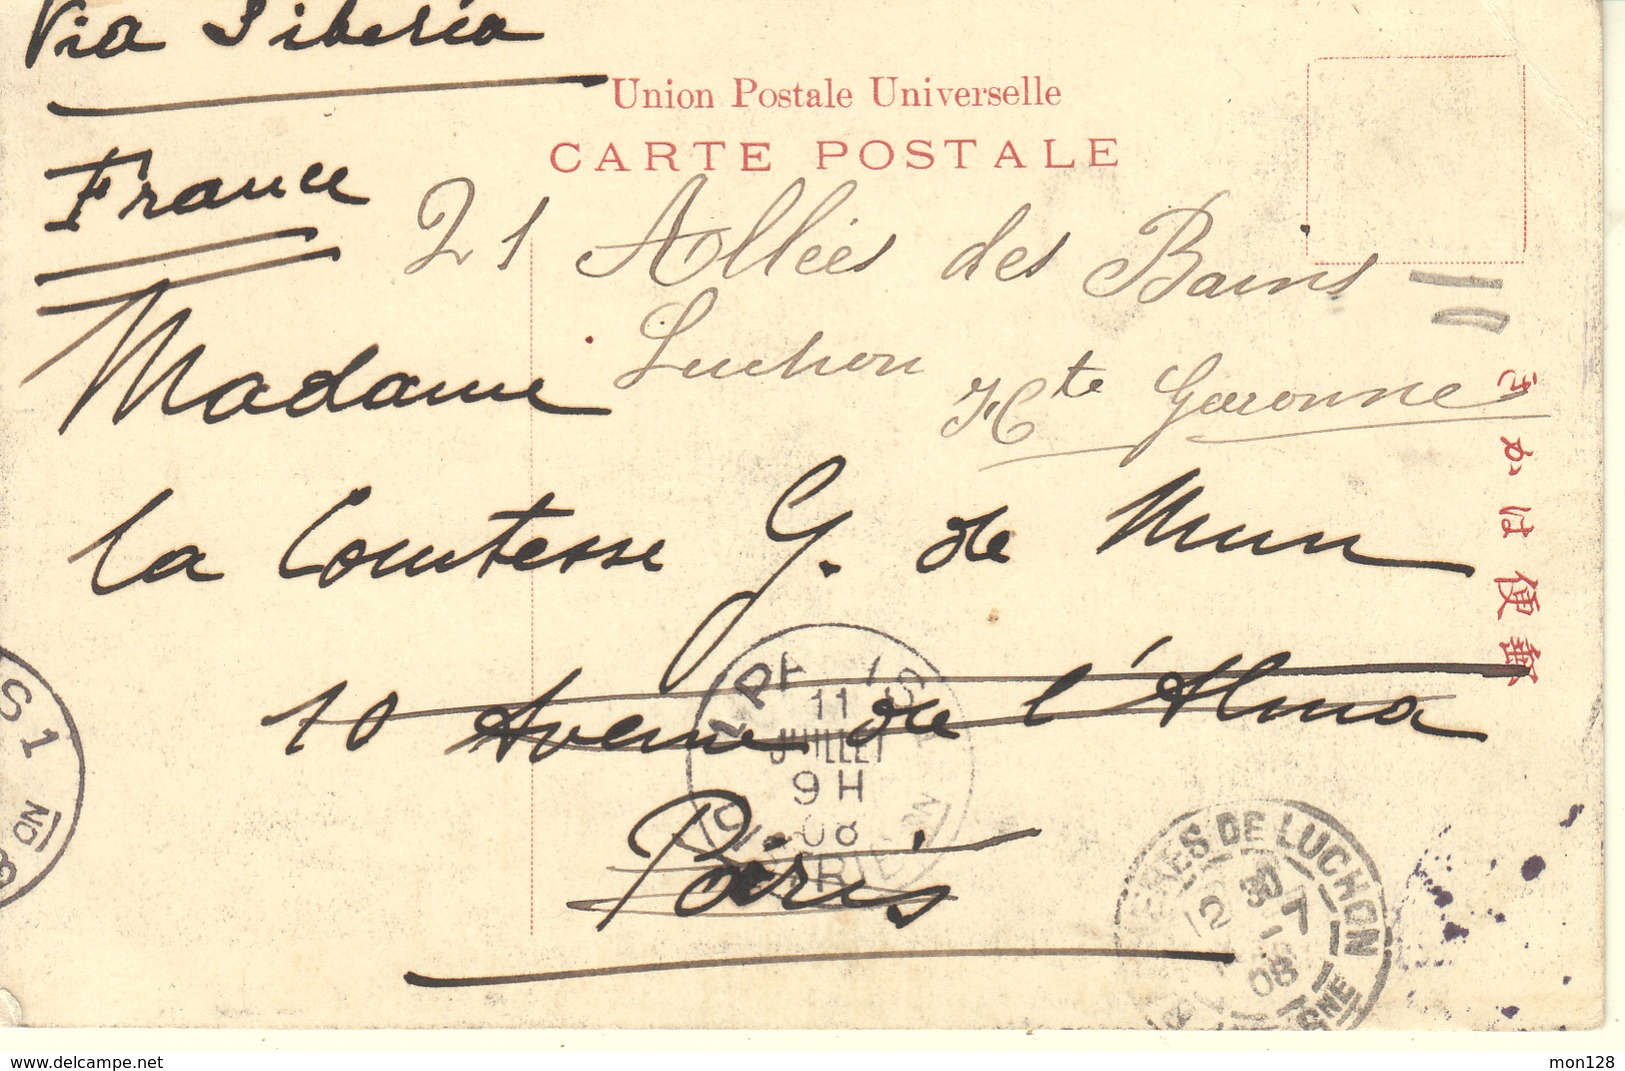 Via Siberia
Union Postale Universelle
CARTE POSTALE
France
21 Allées des Bains
Luchon
Hte Garonne
Madame
la Comtesse G. de Mun
10 Avenue de l'Alma
Paris
きかは便郵
11
JUILLET
9H
08
S1
No
8
DE LUCHON
12 30
7
08
More details
mon128